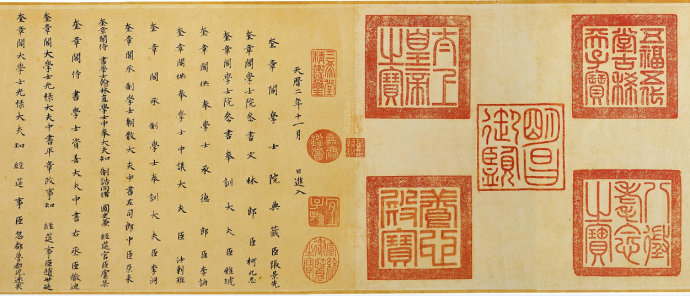 五福五代堂古稀天子寶
八徵耄念之寶
明昌御覽
太上皇帝之寶
養心殿寶
三希堂精鑑璽
宜子孫
天曆二年十一月 日進入
奎章閣學士院典籤臣張景先
奎章閣學士院參書文林郎臣柯九思
奎章閣學士院參書奉訓大夫臣雅琥
奎章閣供奉學士承德郎臣李訥
奎章閣供奉學士中議大夫臣沙剌班
奎章閣承制學士奉訓大夫臣李泂
奎章閣承制學士朝散大夫中書左司郎中臣朵來
奎章閣侍書學士翰林直學士中奉大夫知制誥同脩國史兼經筵官臣虞集
奎章閣侍書學士資善大夫中書右丞臣撒迪
奎章閣大學士光祿大夫中書平章政事知經筵事臣趙世延
奎章閣大學士光祿大夫知經筵事臣忽都魯都兒迷失